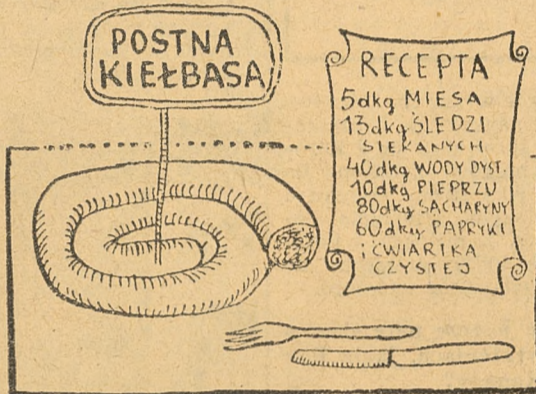 POSTNA
KIEŁBASA
RECEPTA
5dkg MIESA
13dkg ŚLEDZI
SIEKANYCH
40dkg WODY DYST.
10dkg PIEPRZU
80dkg SACHARYNY
60dkg PAPRYKI
i ĆWIARTKA
CZYSTEJ